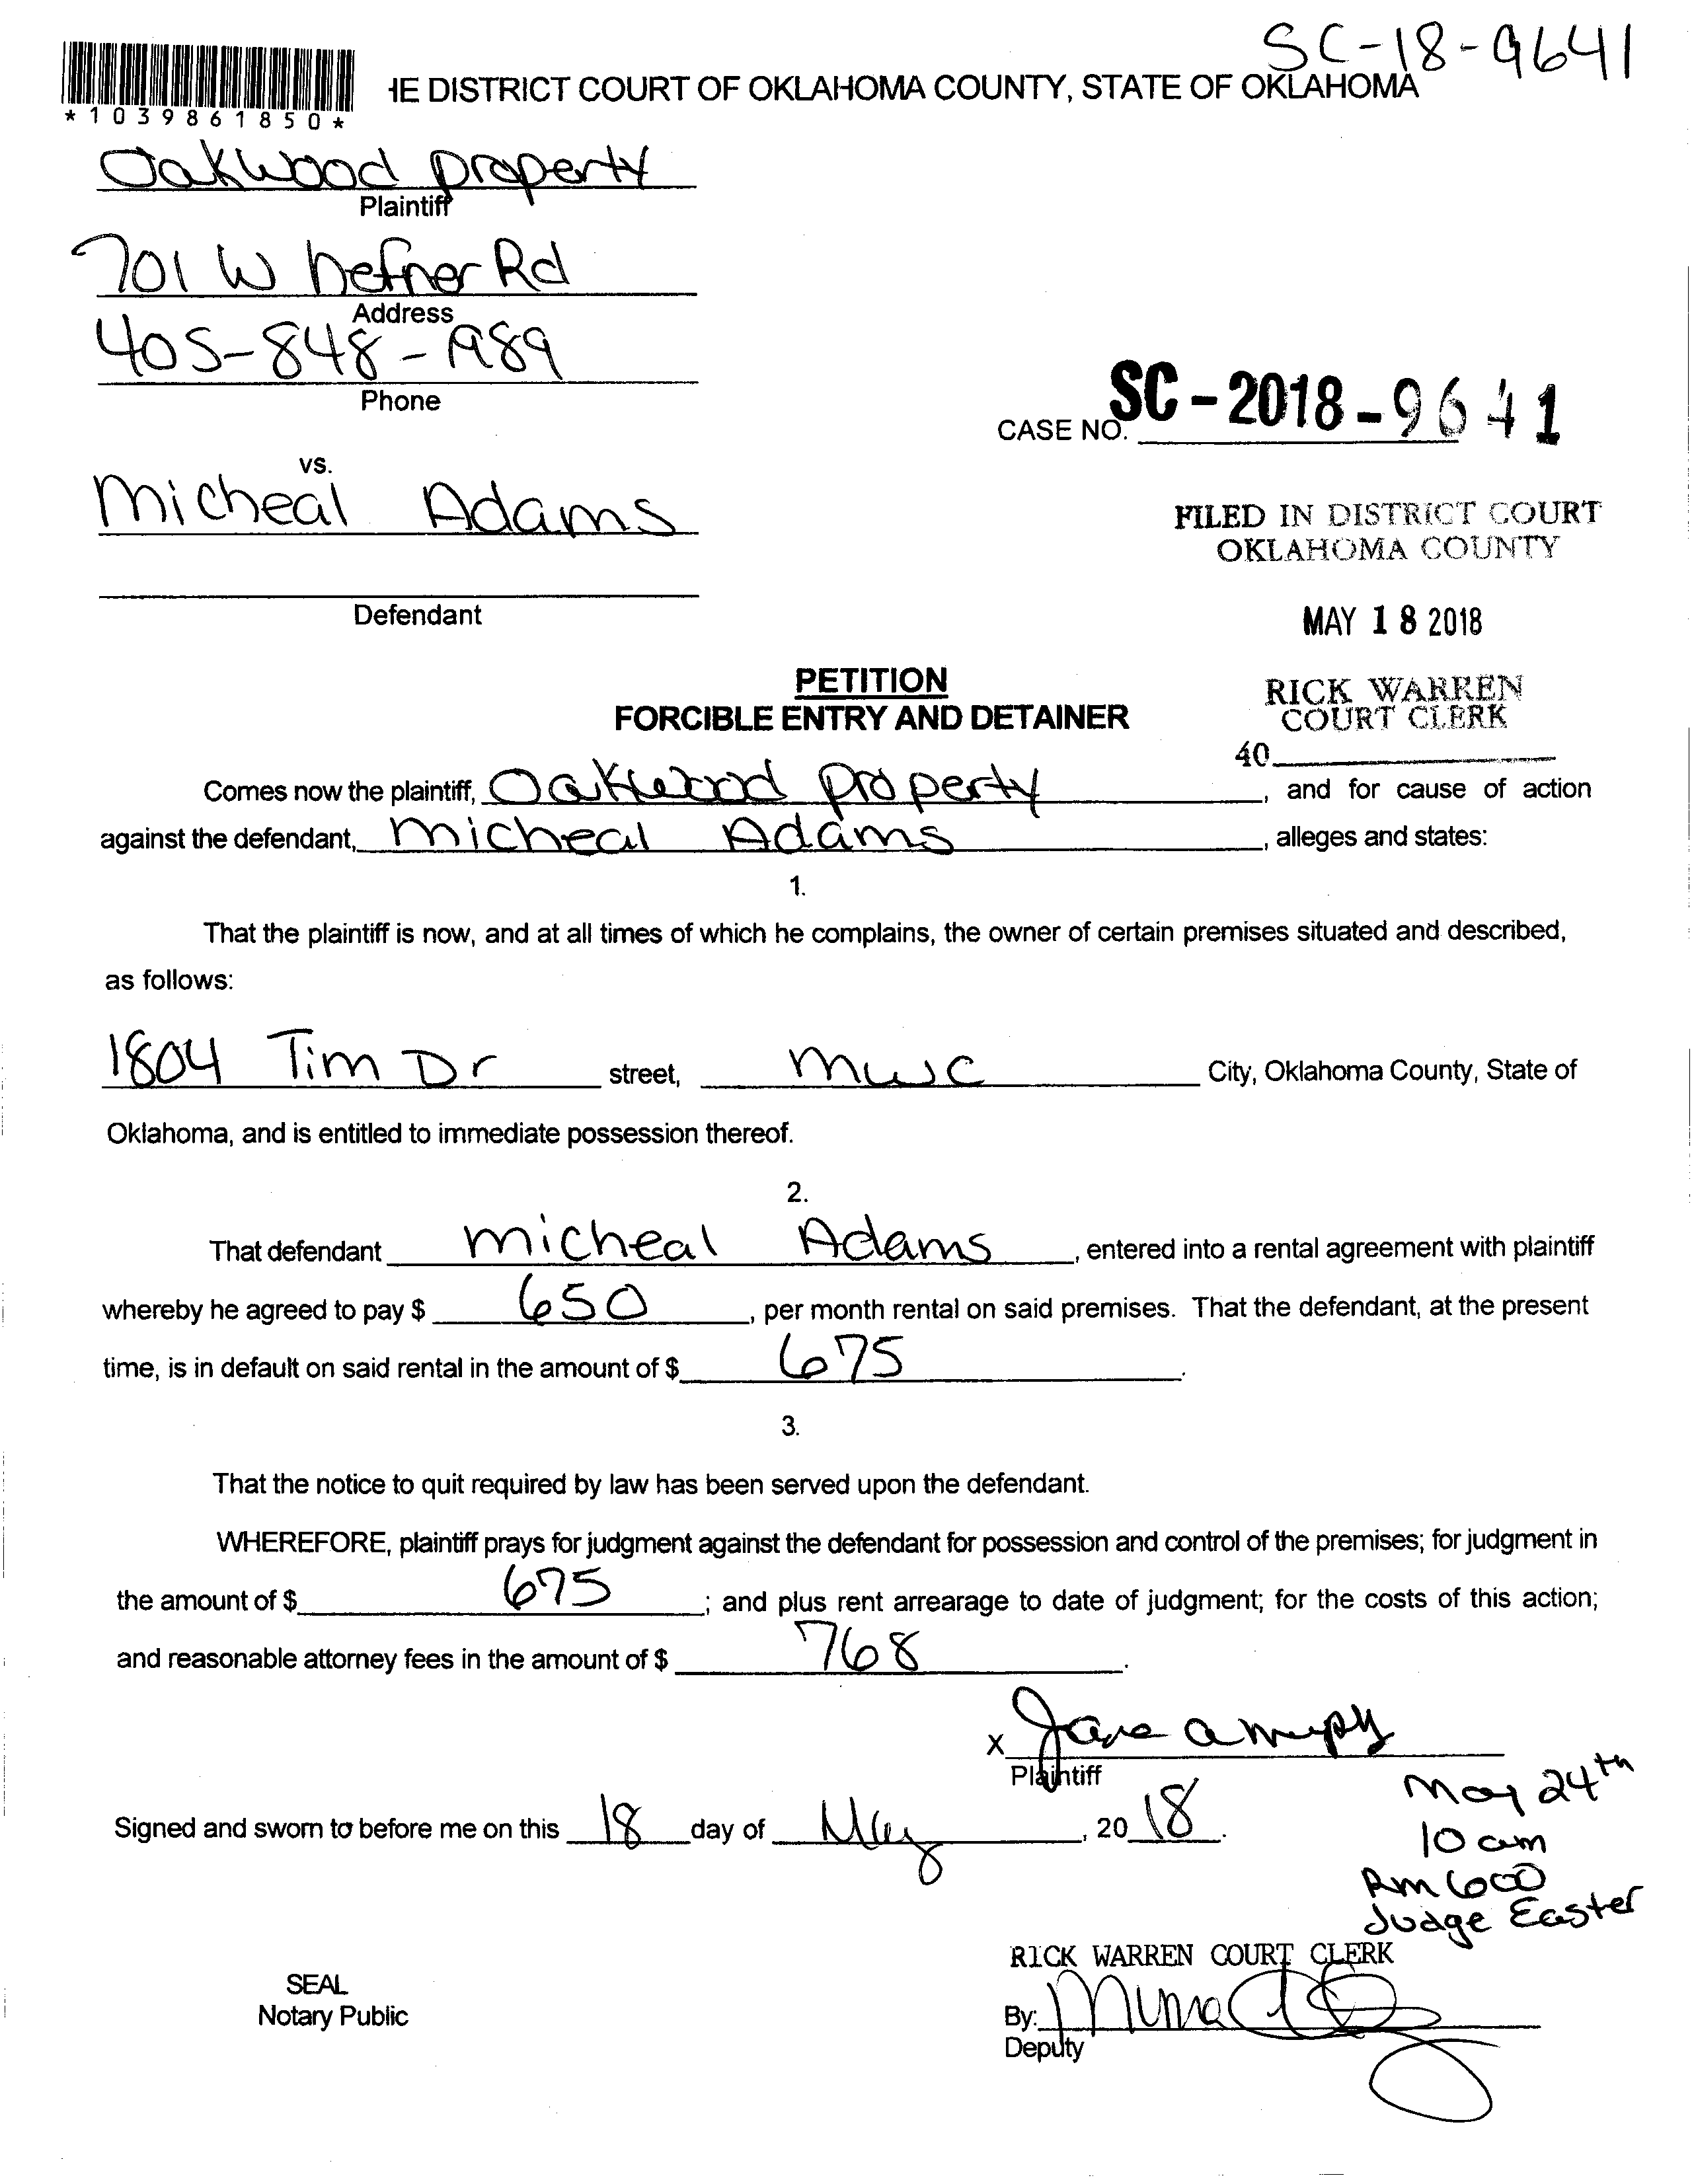 SC-18-9641
HE DISTRICT COURT OF OKLAHOMA COUNTY, STATE OF OKLAHOMA
*1039861850*
Oakwood property
Plaintiff
701 W hefner Rd
Address
405-848-1989
Phone
CASE NO. SC-2018-9641
vs.
Micheal Adams
FILED IN DISTRICT COURT
OKLAHOMA COUNTY
Defendant
MAY 18 2018
PETITION
FORCIBLE ENTRY AND DETAINER
RICK WARREN
COURT CLERK
40
Comes now the plaintiff, Oakwood property, and for cause of action
against the defendant, Micheal Adams, alleges and states:
1.
That the plaintiff is now, and at all times of which he complains, the owner of certain premises situated and described,
as follows:
1804 Tim Dr street, MWC City, Oklahoma County, State of
Oklahoma, and is entitled to immediate possession thereof.
2.
That defendant Micheal Adams, entered into a rental agreement with plaintiff
whereby he agreed to pay $ 650, per month rental on said premises. That the defendant, at the present
time, is in default on said rental in the amount of $ 675.
3.
That the notice to quit required by law has been served upon the defendant.
WHEREFORE, plaintiff prays for judgment against the defendant for possession and control of the premises; for judgment in
the amount of $ 675; and plus rent arrearage to date of judgment; for the costs of this action;
and reasonable attorney fees in the amount of $ 768.
X
Plaintiff
May 24th
10 am
Rm 600
Judge Easter
Signed and sworn to before me on this 18 day of May, 2018.
RICK WARREN COURT CLERK
SEAL
Notary Public
By:
Deputy